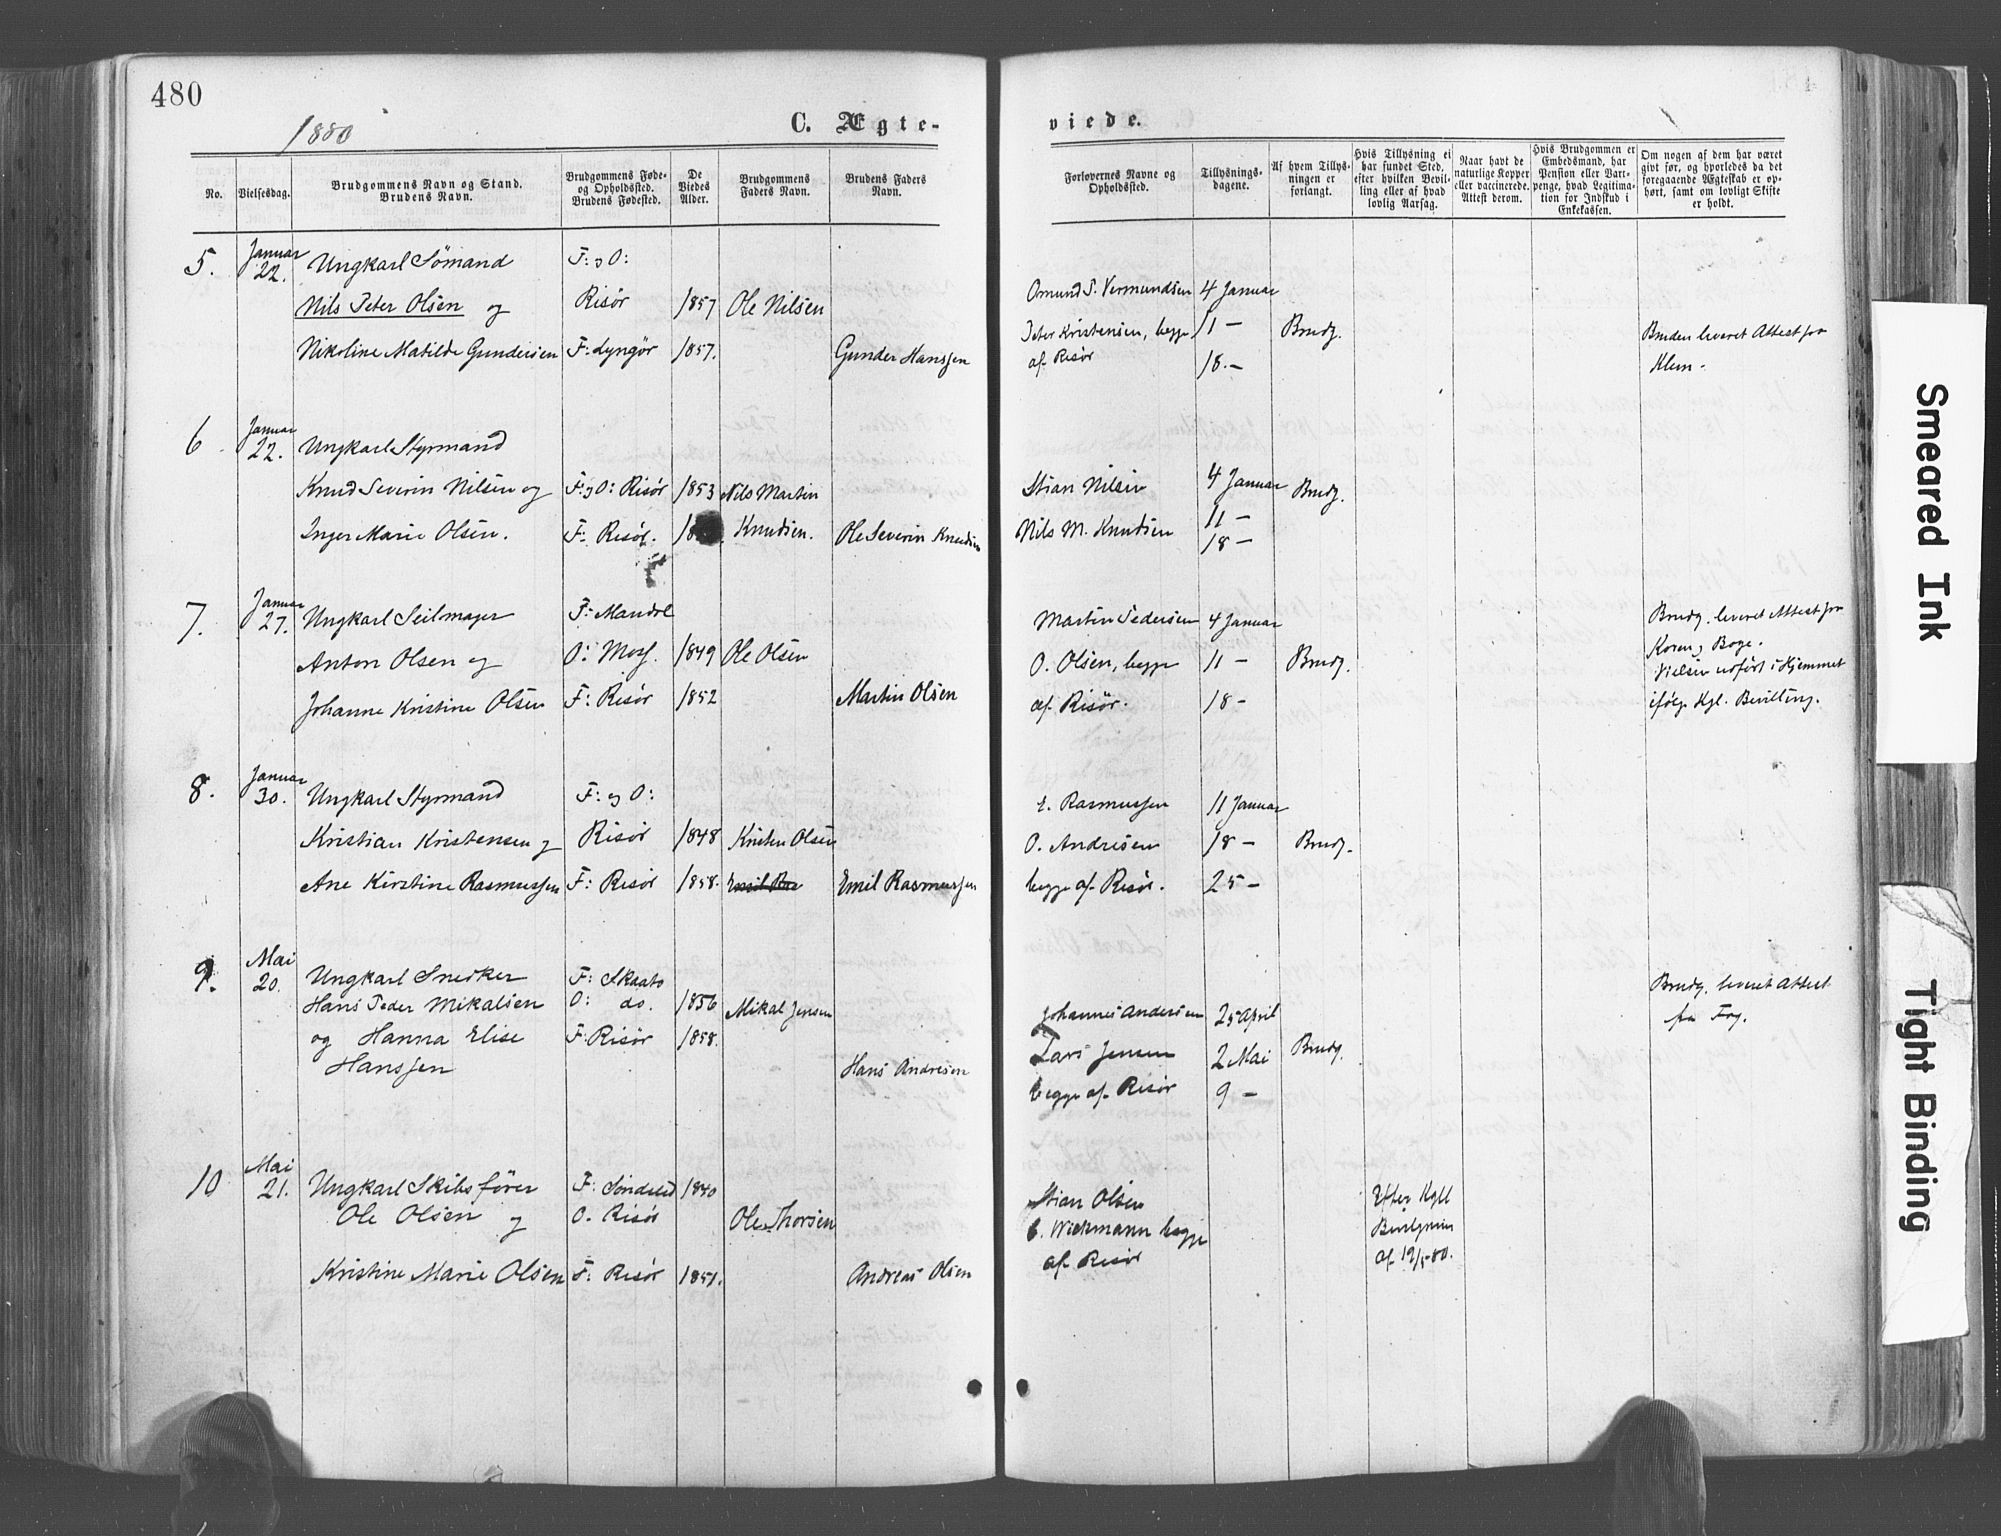 480
1880
C. Ægte-
viede.
No.
Vielsesdag.
Brudgommens Navn og Stand.
Brudens Navn.
Brudgommens Føde-
og Opholdssted.
Brudens Fødested.
De
Viedes
Alder.
Brudgommens
Faders Navn.
Brudens Faders
Navn.
Forlovernes Navne og
Opholdssted.
Tillysnings-
dagene.
Af hvem Tillys-
ningen er
forlangt.
Hvis Tillysning ei
har fundet Sted,
efter hvilken Bevil-
ling eller af hvad
lovlig Aarsag.
Naar havt de
naturlige Kopper
eller vaccinerede.
Attest derom.
Hvis Brudgommen er
Embedsmand, har
Pension eller Vart-
penge, hvad Legitima-
tion for Indskud i
Enkekassen.
Om nogen af dem har været
gift før, og hvorledes da det
foregaaende Ægteskab er op-
hørt, samt om lovligt Skifte
er holdt.
5. Januar 22. Ungkarl Sømand F: og O:
Nils Peter Olsen og Risør 1857 Ole Nilsen
Nikoline Matilde Gundersen F: Lyngør 1857. Gunder Hanssen
Omund S. Vermundsen 4 Januar
Peter Kristensen, begge 11 — Brudg.
af Risør 18. —
Bruden leveret Attest fra
Klem.
6. Januar 22. Ungkarl Styrmand
Knud Severin Nilsen og F: og O: Risør 1853 Nils Martin
Inger Marie Olsen. F: Risør. Knudsen. Ole Severin Knudsen
Stian Nilsen 4 Januar Brudg.
Nils M. Knudsen 11 —
18 —
7. Januar 27. Ungkarl Seilmager F: Mandal
Anton Olsen og O: Moss. 1849 Ole Olsen
Johanne Kristine Olsen F: Risør 1852 Martin Olsen
Martin Pedersen 4 Januar
O. Olsen, begge 11 — Brudg.
af Risør. 18 —
Brudg. leveret Attest fra
Koren, Boge.
Vielsen udført i Hjemmet
ifølge Kgl. Bevilling.
8. Januar 30. Ungkarl Styrmand F: og O:
Kristian Kristensen og Risør 1848 Kristen Olsen
Ane Kirstine Rasmussen F: Risør 1858. Emil Ras Emil Rasmussen
E. Rasmussen 11 Januar
O. Andresen 18 — Brudg.
begge af Risør. 25 —
9. Mai 20. Ungkarl Snedker F: Skaatø
Hans Peder Mikalsen O: do. 1856 Mikal Jensen
og Hanna Elise F: Risør 1858.
Hanssen Hans Andresen
Johannes Andersen 25 April
Lars Jensen 2 Mai Brudg.
begge af Risør 9 —
Brudg. leveret Attest
fra
10 Mai 21. Ungkarl Skibsfører F: Søndeled 1840
Ole Olsen og O. Risør Ole Thorsen
Kristine Marie Olsen F: Risør 1851. Andreas Olsen
Stian Olsen
C. Wickmann begge
af Risør
Efter Kgl
af 19/5 80.
Smeared Ink
Tight Binding